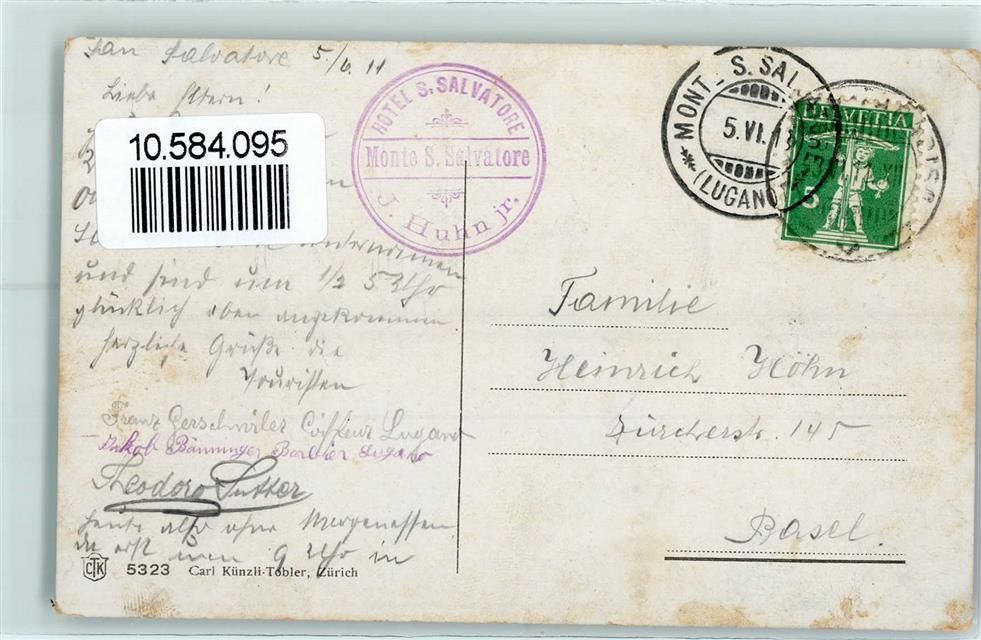 San Salvatore 5./6. 11
Liebe Eltern!
10.584.095
unternommen
und sind um 1/2 5 Uhr
glücklich oben angekommen
herzliche Grüße die
Touristen
Franz Gerschwiler Coiffeur Lugano
Jakob Bänninger Barbier Lugano
Theodoro Sutter
heute also ohne Morgenessen
da erst um 9 Uhr in
CTK 5323 Carl Künzli-Tobler, Zürich
HOTEL S. SALVATORE
Monte S. Salvatore
J. Huhn jr.
MONT_S. SAL
5. VI. 1
(LUGANO)
HELVETIA
5
Familie
Heinrich Höhn
Zürcherstr. 145
Basel.